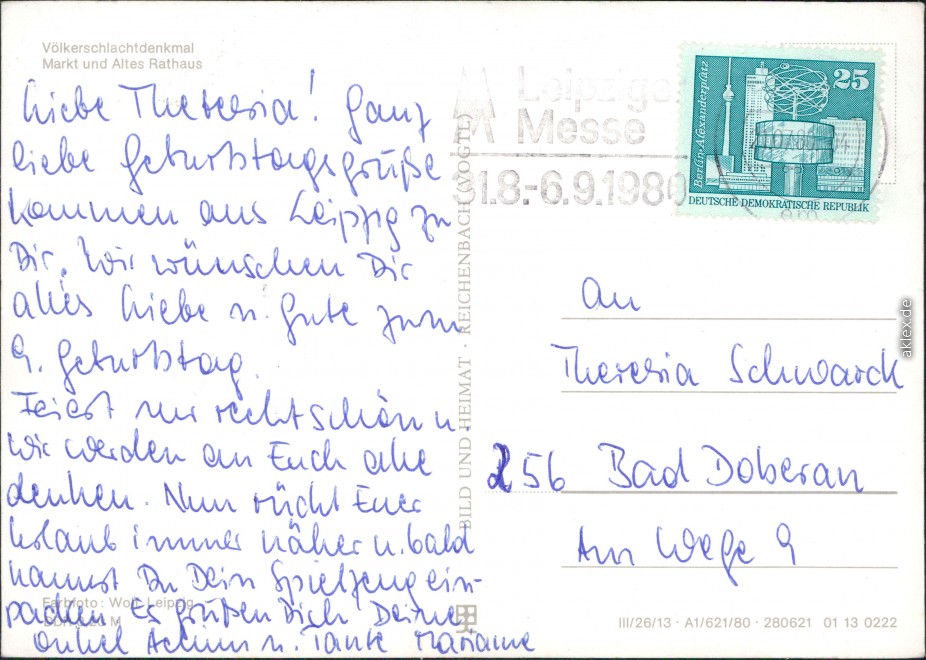 Völkerschlachtdenkmal
Markt und Altes Rathaus
Liebe Theresia! Ganz
liebe Geburtstagsgrüße
kommen aus Leipzig zu
Dir. Wir wünschen Dir
alles Liebe u. Gute zum
9. Geburtstag.
Feiert nur recht schön u.
wir werden an Euch alle
denken. Nun rückt Euer
Urlaub immer näher u. bald
kannst Du Dein Spielzeug ein-
packen. Es grüßen Dich Deine
Onkel Achim u. Tante Marianne
Farbfoto: Wolf, Leipzig
BILD UND HEIMAT · REICHENBACH (VOGTL)
Leipziger
Messe
31.8.-6.9.1980
Berlin-Alexanderplatz
25
DEUTSCHE DEMOKRATISCHE REPUBLIK
An
Theresia Schwarck
256 Bad Doberan
Am Wege 9
III/26/13 · A1/621/80 · 280621 01 13 0222
aklex.de